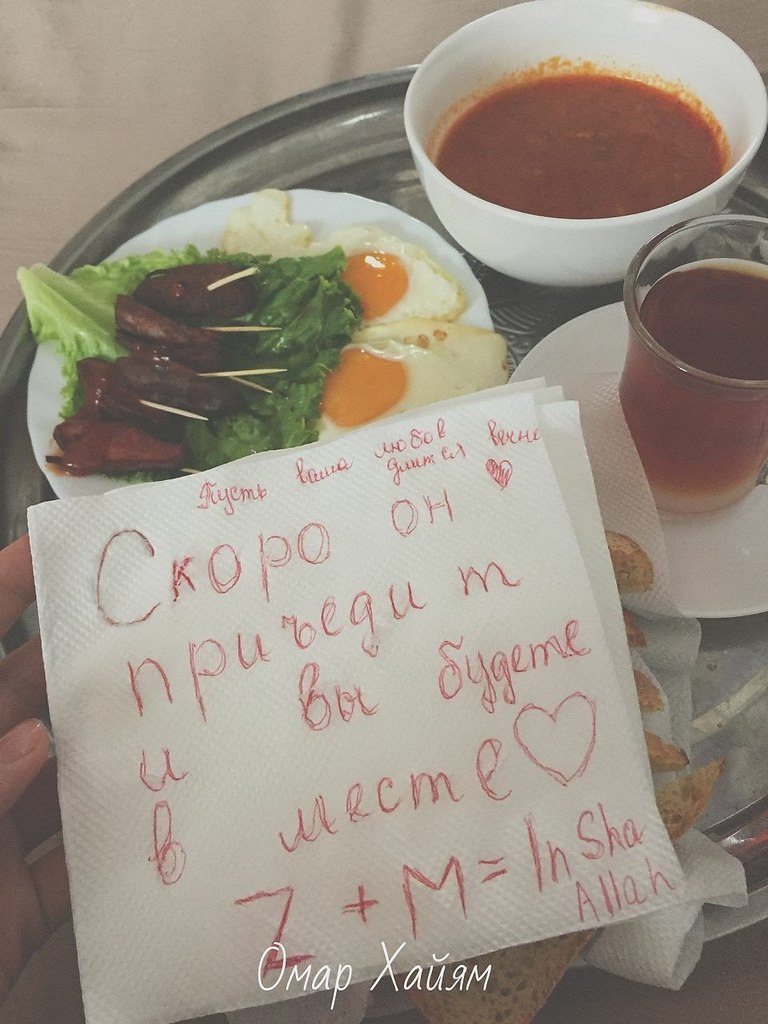 Пусть ваша любов
длится вечно
Скоро он
приъедит
и вы будете
в месте
Z + M = In Sha
Allah
Омар Хайям